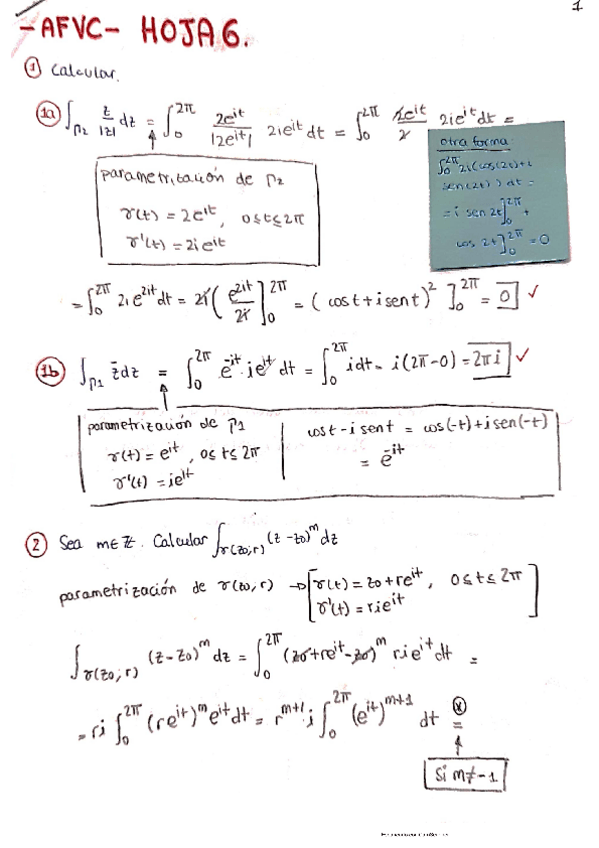 1
-AFVC- HOJA 6.
① Calcular.
1a ∫_Γ2 z/|z| dz = ∫_0^2π 2e^it/|2e^it| 2ie^it dt = ∫_0^2π 2e^it/2 2ie^it dt =
otra forma
∫_0^2π 2i(cos(2t)+i
sen(2t)) dt =
= i sen 2t]_0^2π +
cos 2t]_0^2π = 0
parametrización de Γ2
γ(t) = 2e^it, 0≤t≤2π
γ'(t) = 2ie^it
= ∫_0^2π 2i e^2it dt = 2i (e^2it/2i]_0^2π = (cos t + i sen t)^2 ]_0^2π = 0 ✓
1b ∫_Γ1 z̄ dz = ∫_0^2π e^-it · ie^it dt = ∫_0^2π i dt = i(2π-0) = 2πi ✓
parametrización de Γ1
γ(t) = e^it, 0≤t≤2π
γ'(t) = ie^it
cos t - i sen t = cos(-t) + i sen(-t)
= e^-it
② Sea m∈ℤ. Calcular ∫_γ(z0;r) (z-z0)^m dz
parametrización de γ(z0,r) → [γ(t) = z0+re^it, 0≤t≤2π
γ'(t) = rie^it ]
∫_γ(z0;r) (z-z0)^m dz = ∫_0^2π (z0+re^it-z0)^m rie^it dt =
= ri ∫_0^2π (re^it)^m e^it dt = r^m+1 i ∫_0^2π (e^it)^m+1 dt = ⊛
Si m≠-1